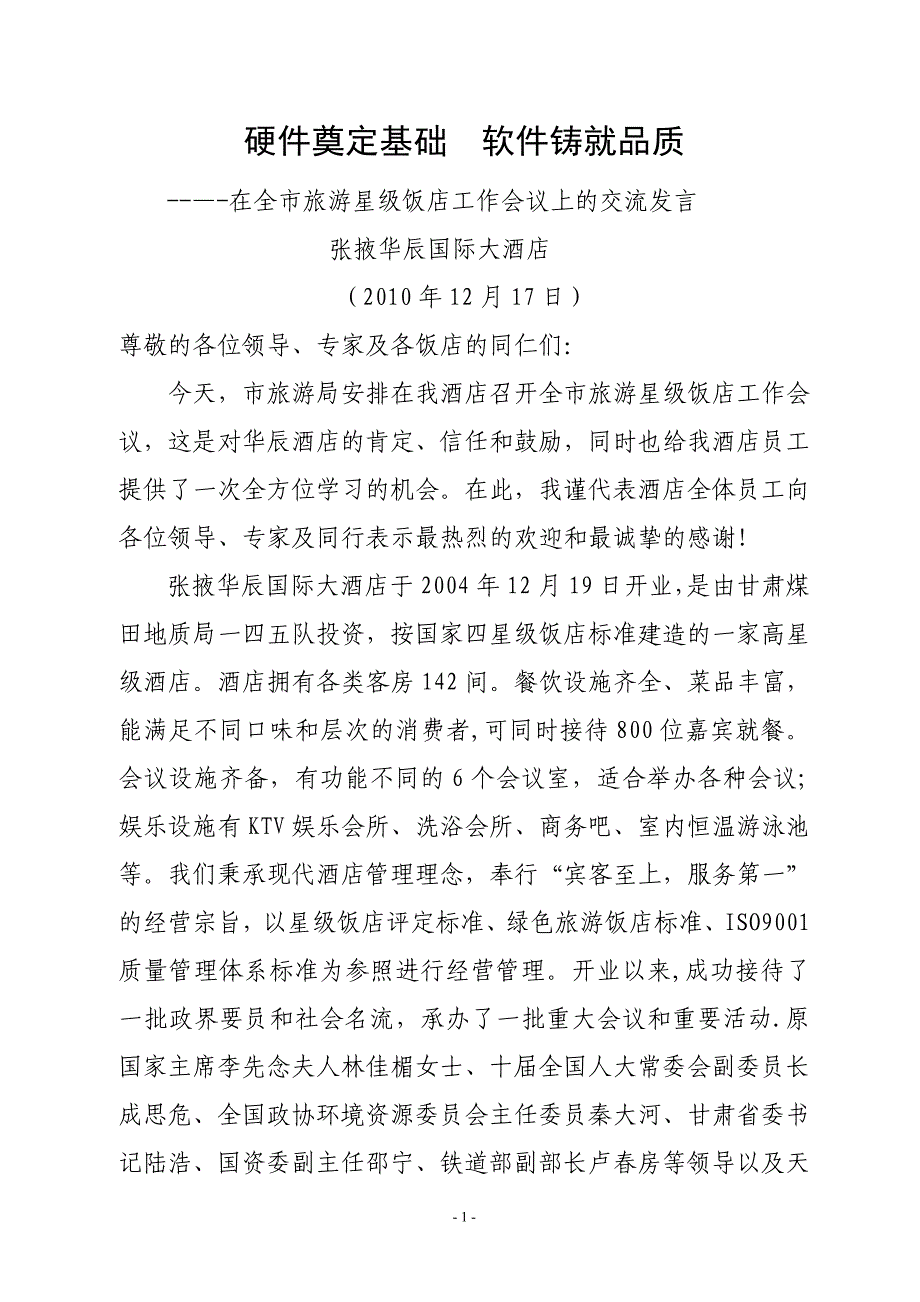 硬件奠定基础　软件铸就品质
-----在全市旅游星级饭店工作会议上的交流发言
张掖华辰国际大酒店
（2010 年 12 月 17 日）
尊敬的各位领导、专家及各饭店的同仁们：
今天，市旅游局安排在我酒店召开全市旅游星级饭店工作会
议，这是对华辰酒店的肯定、信任和鼓励，同时也给我酒店员工
提供了一次全方位学习的机会。在此，我谨代表酒店全体员工向
各位领导、专家及同行表示最热烈的欢迎和最诚挚的感谢！
张掖华辰国际大酒店于 2004 年 12 月 19 日开业,是由甘肃煤
田地质局一四五队投资，按国家四星级饭店标准建造的一家高星
级酒店。酒店拥有各类客房 142 问。餐饮设施齐全、菜品丰富，
能满足不同口味和层次的消费者,可同时接待 800 位嘉宾就餐。
会议设施齐备，有功能不同的 6 个会议室，适合举办各种会议；
娱乐设施有 KTV 娱乐会所、洗浴会所、商务吧、室内恒温游泳池
等。我们秉承现代酒店管理理念，奉行“宾客至上，服务第一”
的经营宗旨，以星级饭店评定标准、绿色旅游饭店标准、ISO9001
质量管理体系标准为参照进行经营管理。开业以来,成功接待了
一批政界要员和社会名流，承办了一批重大会议和重要活动.原
国家主席李先念夫人林佳楣女士、十届全国人大常委会副委员长
成思危、全国政协环境资源委员会主任委员秦大河、甘肃省委书
记陆浩、国资委副主任邵宁、铁道部副部长卢春房等领导以及天
- 1 -